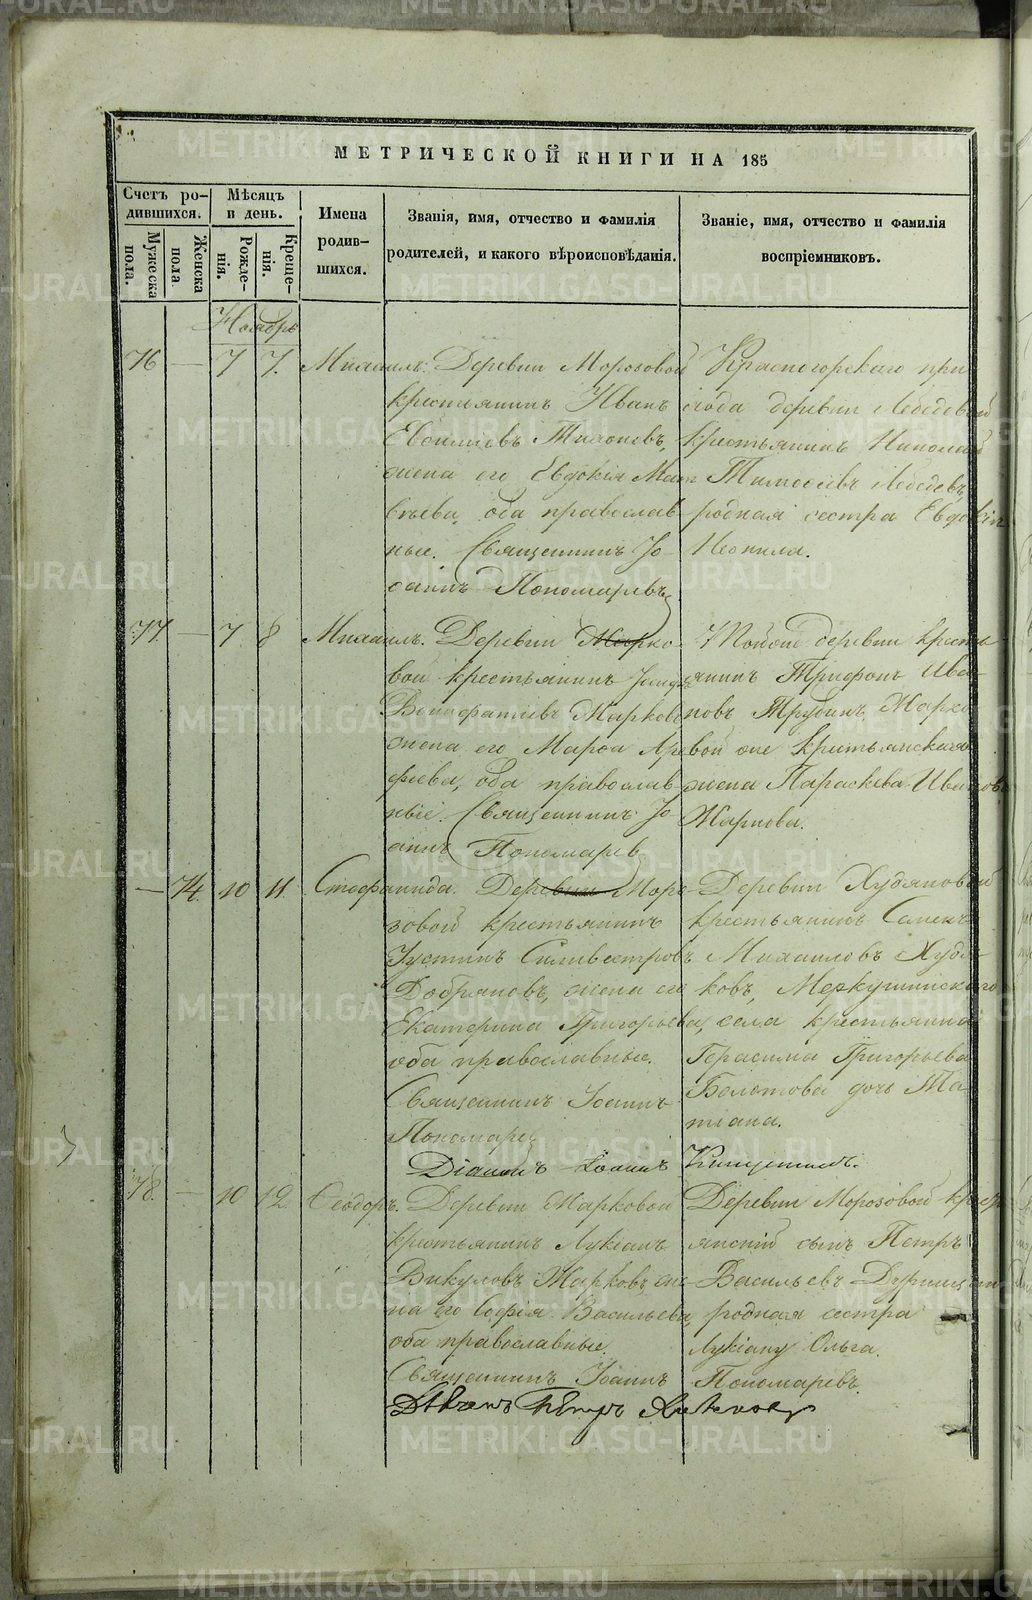 МЕТРИЧЕСКОЙ КНИГИ НА 185
Счетъ ро-
дившихся.
Мужеска пола.
Женска пола
Мѣсяцъ и день.
Рожде-нія.
Креще-нія.
Имена родив-шихся.
Званія, имя, отчество и фамилія родителей, и какого вѣроисповѣданія.
Званіе, имя, отчество и фамилія воспріемниковъ.
Ноябрь
76 — 7 7. Михаилъ. Деревни Морозовой
крестьянинъ Иванъ
Евсиміевъ Тихоновъ,
жена его Евдокія Мат
вѣева, оба православ
ные. Священникъ Іо
аннъ Пономаревъ
Красногорскаго при
хода деревни Лебедевой
крестьянинъ Николай
Тимоѳеевъ Лебедевъ,
родная сестра Евдокіи
Неонила.
77. — 7 8 Михаилъ. Деревни Марко-
вой крестьянинъ
Вонифатіевъ Марковъ
жена его Марѳа Аре
фьева, оба православ
ные. Священникъ Іо
аннъ Пономаревъ
Тойже деревни кресть
янинъ Трифонъ Ива-
новъ Трубинъ, Марко
вой же крестьянскаго
жена Параскева Иванова
Маркова.
— 74. 10 11 Стефанида. Деревни Моро-
зовой крестьянинъ
Іустинъ Сильвестровъ
Добряновъ, жена его
Екатерина Григорьева,
оба православные.
Священникъ Іоаннъ
Пономаревъ
Діаконъ Іоаннъ
Деревни Худяковой
крестьянинъ Семенъ
Михаиловъ Худя-
ковъ, Меркушинскаго
села крестьянина
Герасима Григорьева
Болотова дочь Та-
тіана.
78. — 10 12 Ѳеодоръ. Деревни Марковой
крестьянинъ Лукіанъ
Викуловъ Марковъ, же-
на его Софія Васильева
оба православные.
Священникъ Іоаннъ Пономаревъ.
Деревни Морозовой крест
янскій сынъ Петръ
Васильевъ
родная сестра
Лукіану Ольга.
Петръ
METRIKI.GASO-URAL.RU